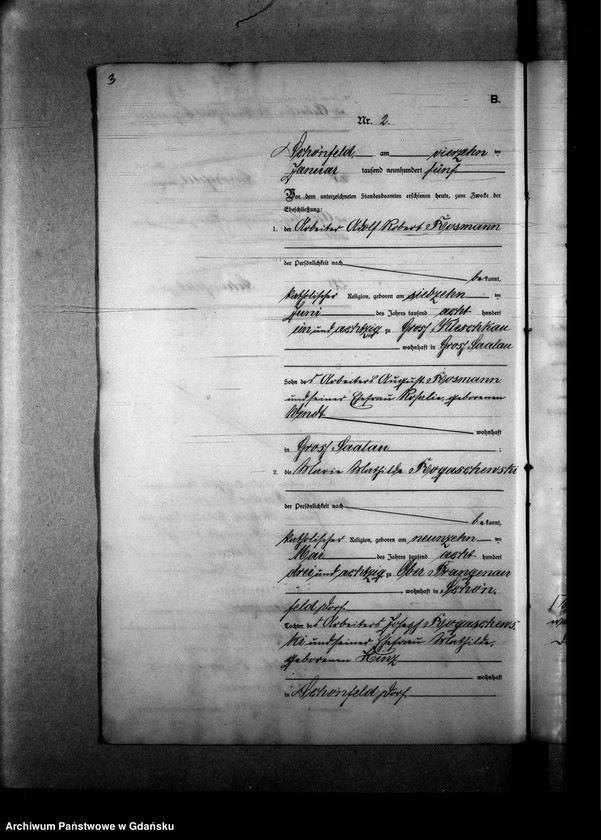 3
B.
Nr. 2.
Schönfeld, am vierzehn ten
Januar tausend neunhundert fünf
Vor dem unterzeichneten Standesbeamten erschienen heute, zum Zwecke der
Eheschließung:
1. der Arbeiter Adolf Robert Kosmann
der Persönlichkeit nach
be kannt,
katholischer Religion, geboren am siebzehn ten
Juni des Jahres tausend acht hundert
ein und achtzig zu Gross Kleschkau
, wohnhaft in Gross Saalau
Sohn des Arbeiters August Kosmann
und seiner Ehefrau Rosalie, geborenen
Wendt
wohnhaft
in Gross Saalau ;
2. die Marie Mathilde Rogaschewski
der Persönlichkeit nach
be kannt,
katholischer Religion, geboren am neunzehn ten
Mai des Jahres tausend acht hundert
drei und achtzig zu Ober Prangenau
, wohnhaft in Schön,
feld, Dorf
Tochter des Arbeiters Josef Rogaschews,
ki und seiner Ehefrau Mathilde,
geborenen Hinz
wohnhaft
in Schönfeld, Dorf
Archiwum Państwowe w Gdańsku